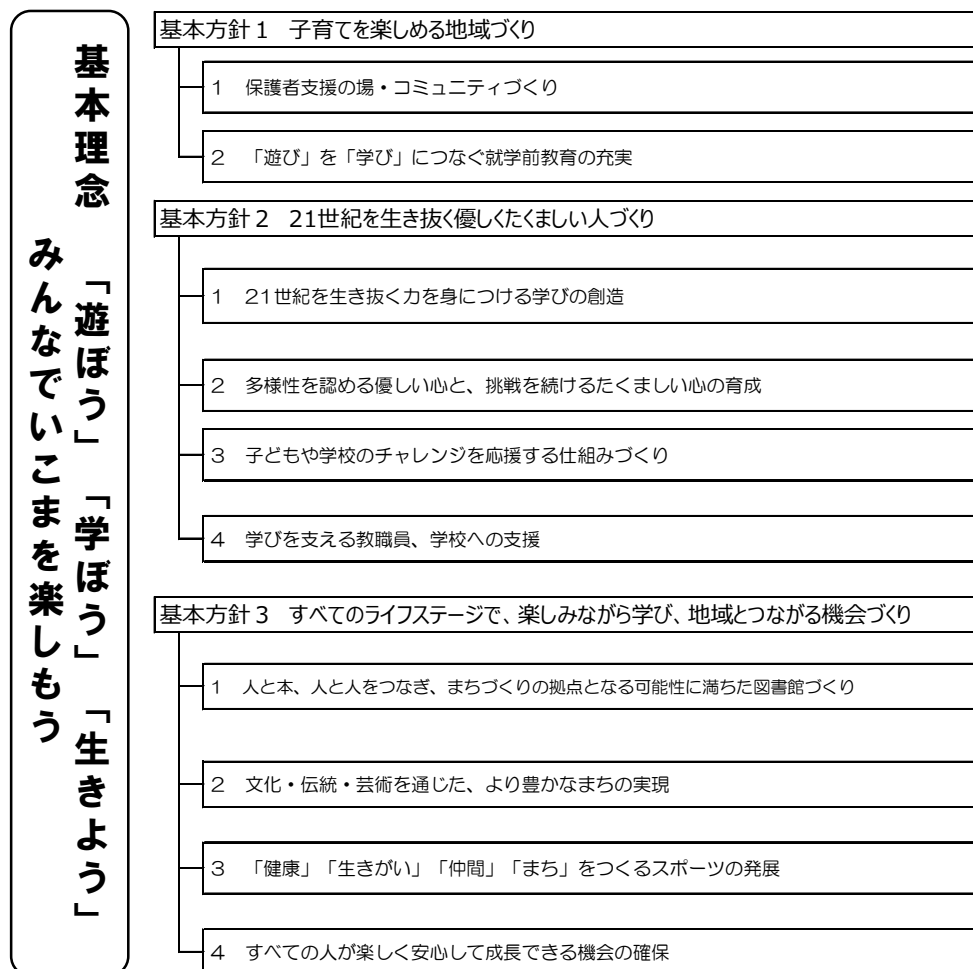 基本理念 「遊ぼう」「学ぼう」「生きよう」
みんなでいこまを楽しもう
基本方針１ 子育てを楽しめる地域づくり
１ 保護者支援の場・コミュニティづくり
２ 「遊び」を「学び」につなぐ就学前教育の充実
基本方針２ 21世紀を生き抜く優しくたくましい人づくり
１ 21世紀を生き抜く力を身につける学びの創造
２ 多様性を認める優しい心と、挑戦を続けるたくましい心の育成
３ 子どもや学校のチャレンジを応援する仕組みづくり
４ 学びを支える教職員、学校への支援
基本方針３ すべてのライフステージで、楽しみながら学び、地域とつながる機会づくり
１ 人と本、人と人をつなぎ、まちづくりの拠点となる可能性に満ちた図書館づくり
２ 文化・伝統・芸術を通じた、より豊かなまちの実現
３ 「健康」「生きがい」「仲間」「まち」をつくるスポーツの発展
４ すべての人が楽しく安心して成長できる機会の確保